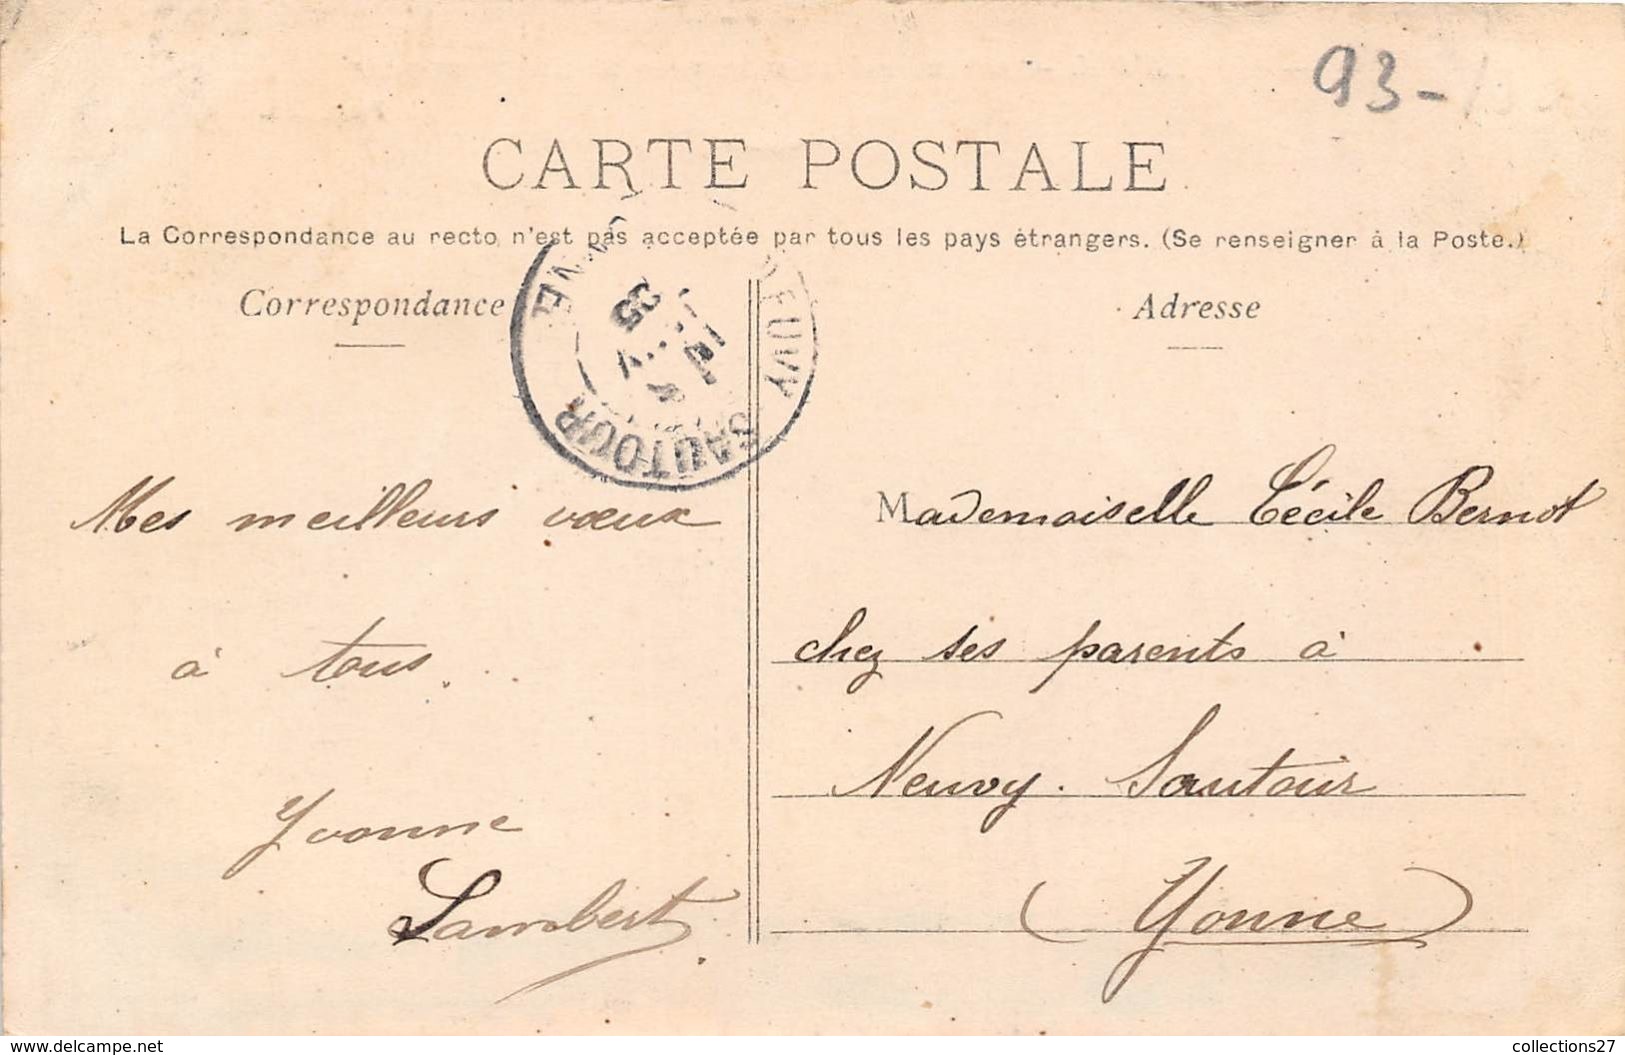 93-
CARTE POSTALE
La Correspondance au recto n'est pas acceptée par tous les pays étrangers. (Se renseigner à la Poste.)
Correspondance
Mes meilleurs vœux
à tous...
Yvonne
Lambert
SAUTOUR
Adresse
Mademoiselle Cécile Bernot
chez ses parents à
Neuvy-Sautour
(Yonne)
www.delcampe.net
collections27